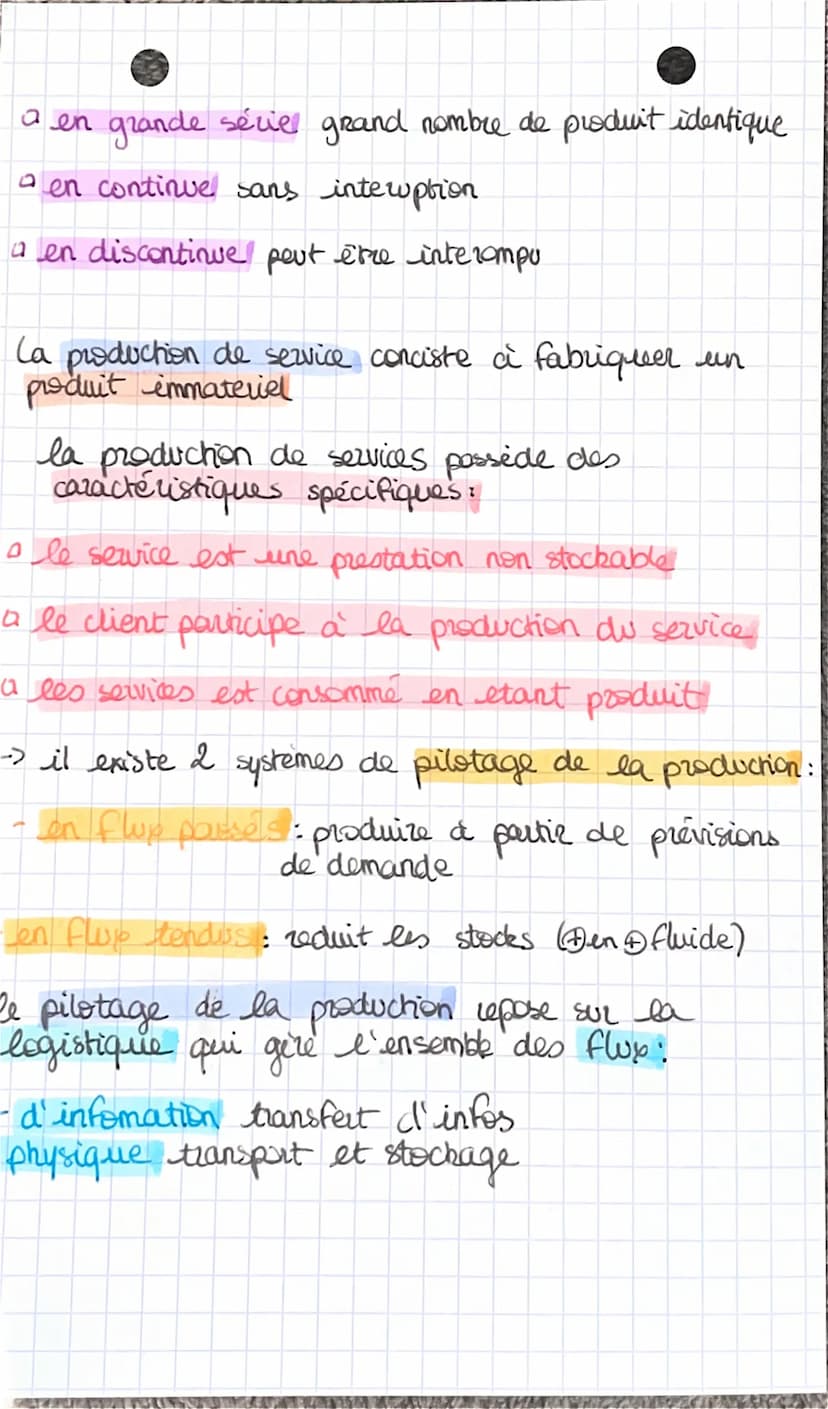 ▫ en grande série grand nombre de produit identique
▫ en continue sans interuption
▫ en discontinue peut être interompu
la production de service conciste à fabriquer un
produit immateriel
la production de services possède des
caractéristiques spécifiques :
▫ le service est une prestation non stockable
▫ le client participe à la production du service
▫ les services est consommé en etant produit
-> il existe 2 systèmes de pilotage de la production :
- en flux poussés : produire à partir de prévisions
de demande
en flux tendus : reduit les stocks (⊕ en ⊕ fluide)
le pilotage de la production repose sur la
logistique qui gère l'ensemble des flux :
- d'infomation transfert d'infos
physique transport et stockage